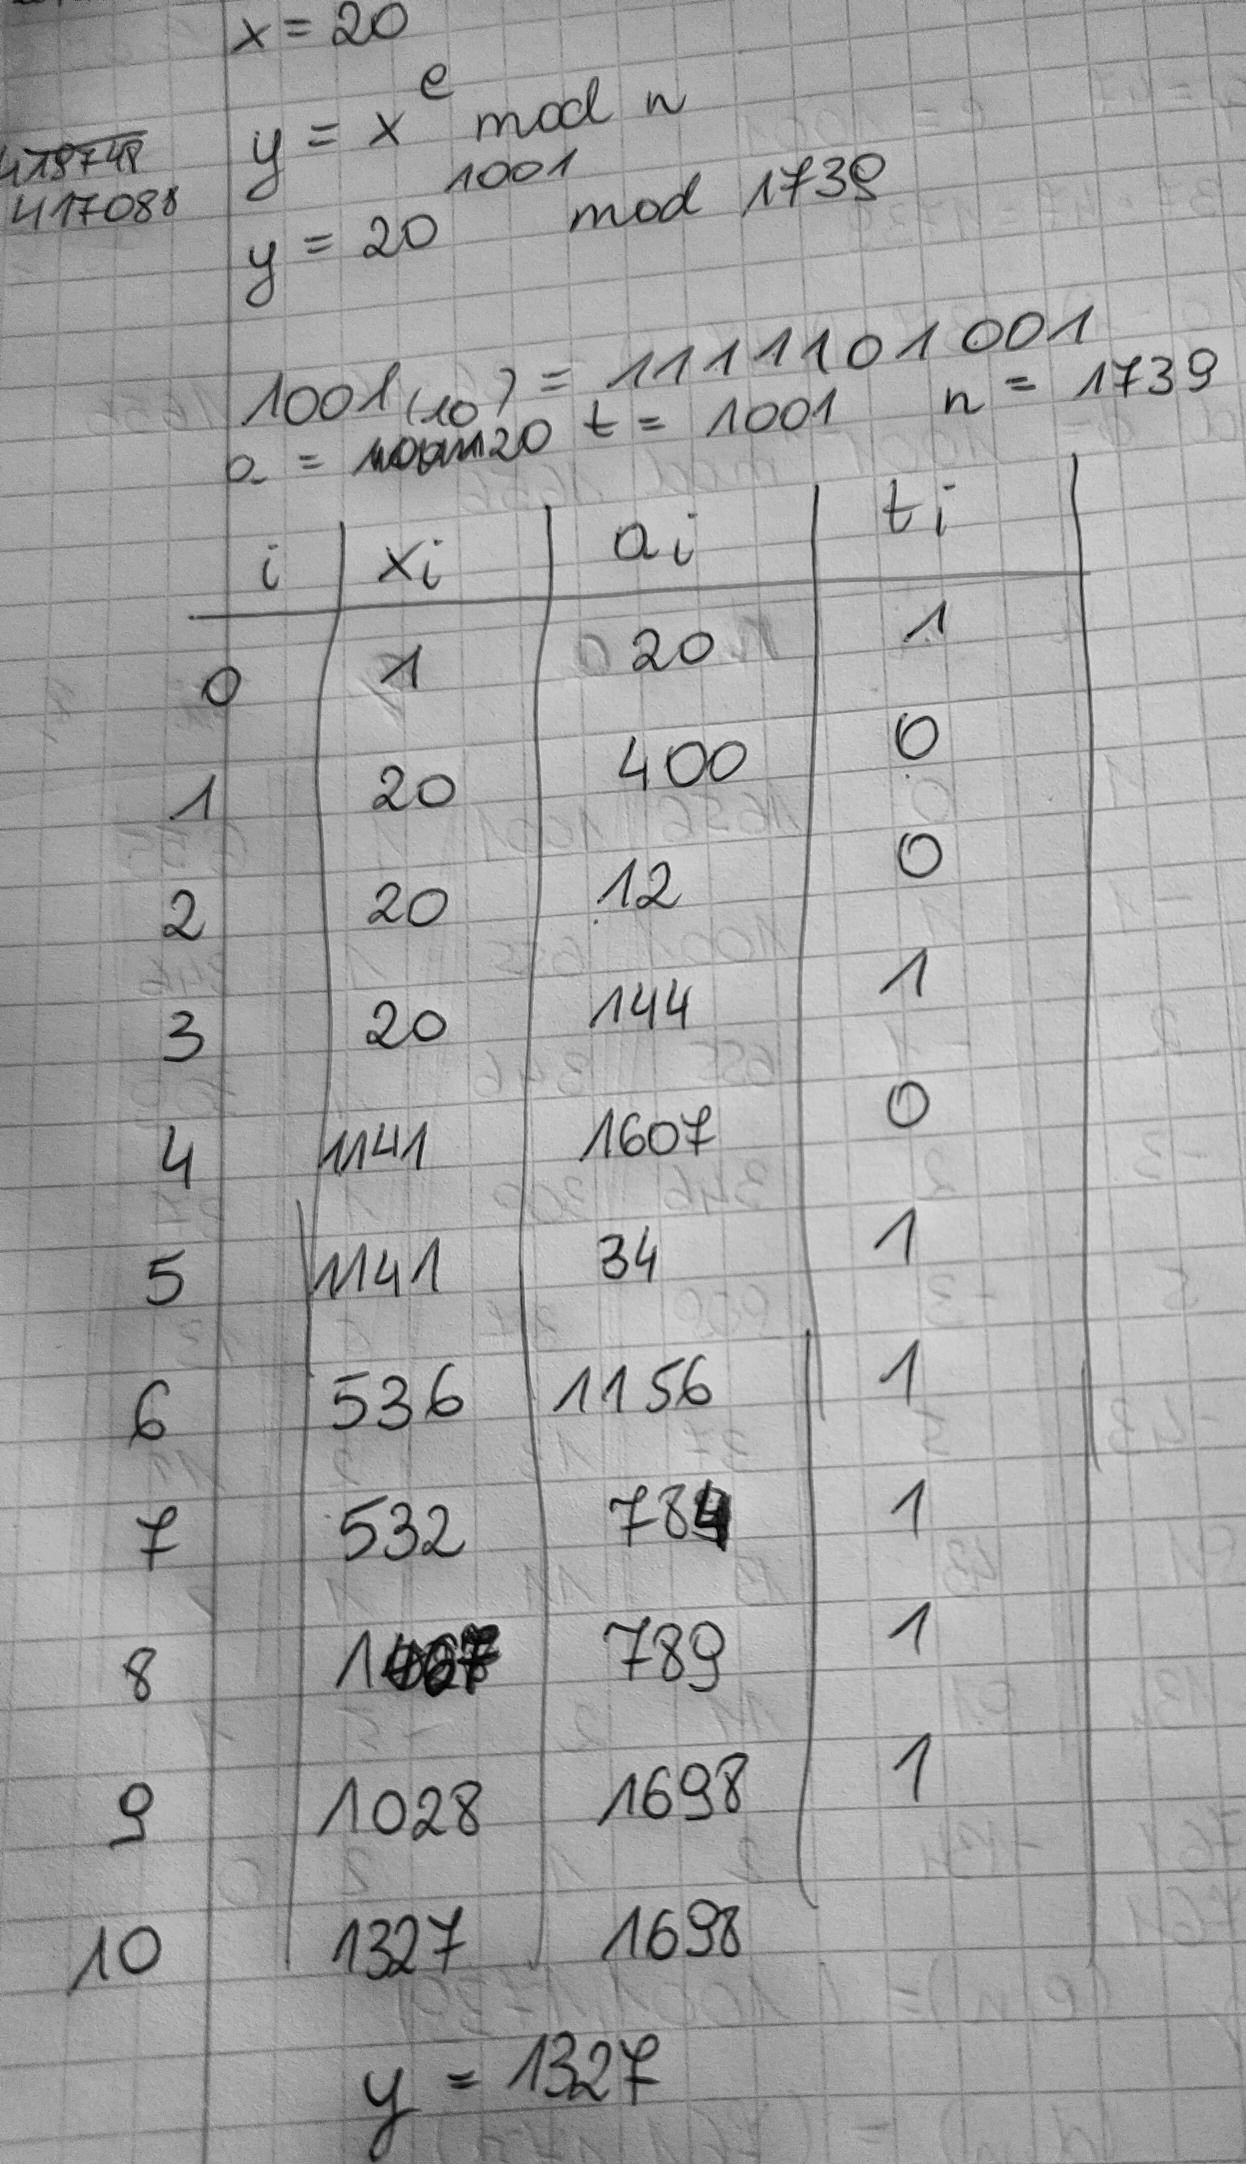 x = 20
y = x^e mod n
417088
y = 20^1001 mod 1739
1001(10) = 1111101001
a = 20 t = 1001 n = 1739
i xi ai ti
0 1 20 1
1 20 400 0
2 20 12 0
3 20 144 1
4 1141 1607 0
5 1141 34 1
6 536 1156 1
7 532 784 1
8 789 1
9 1028 1698 1
10 1327 1698
y = 1327